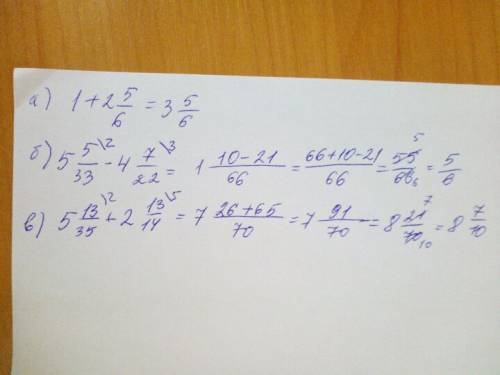 а) 1 + 2 5/6 = 3 5/6
б) 5 5/33 \2 - 4 7/22 \3 = 1 10-21/66 = 66+10-21/66 = 55/66 5 6 = 5/6
в) 5 13/35 \2 + 2 13/14 \5 = 7 26+65/70 = 7 91/70 = 8 21/70 7 10 = 8 7/10